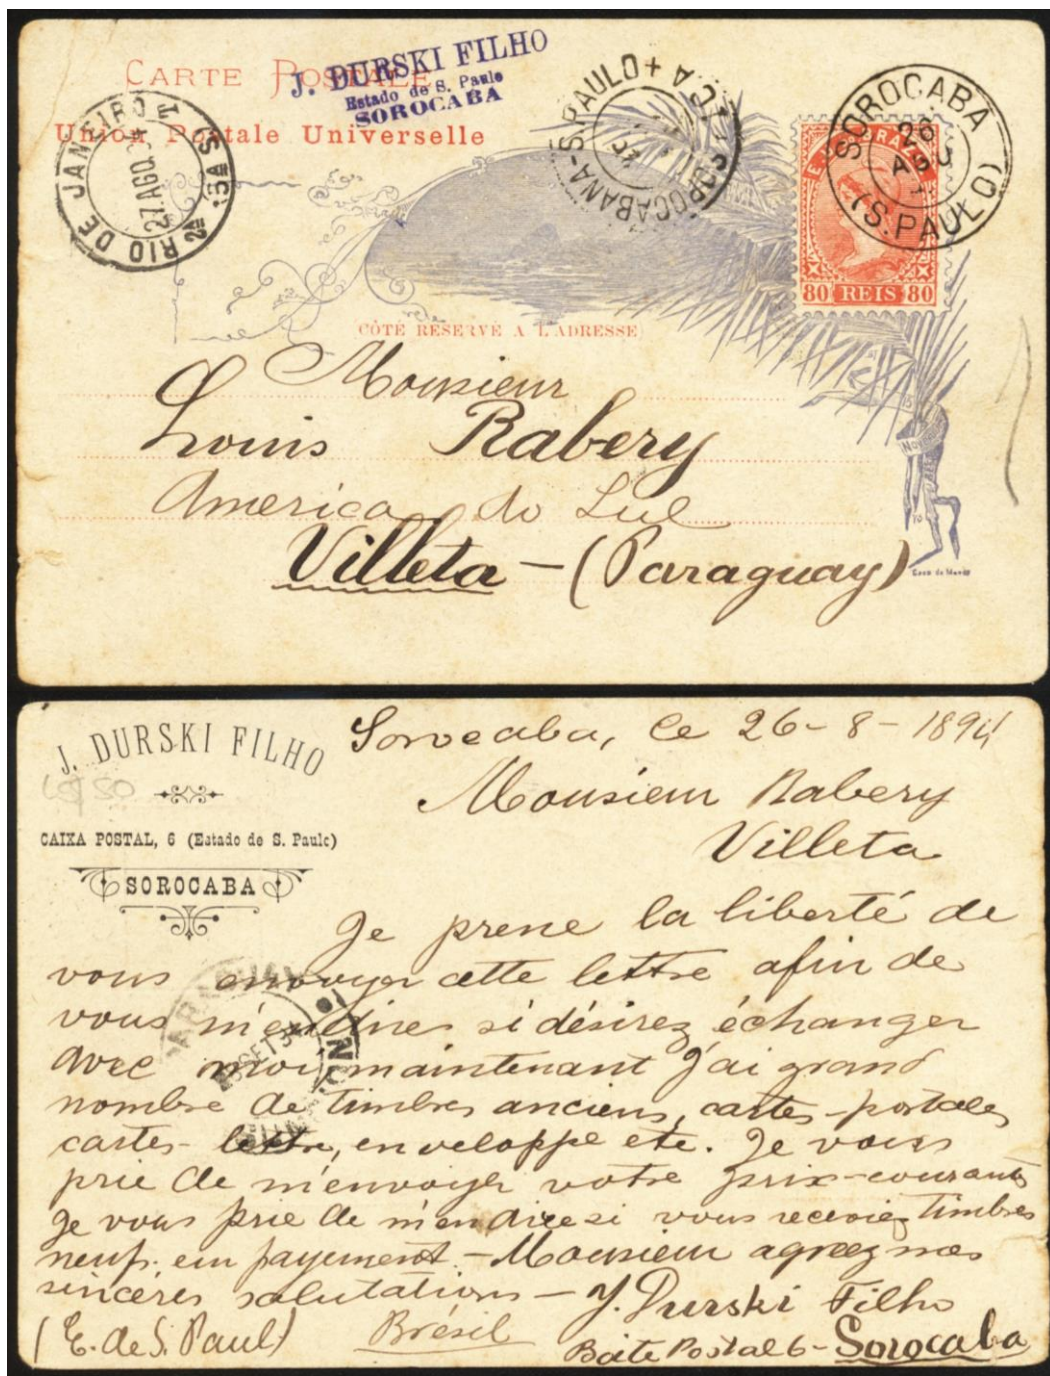 CARTE POSTALE
J. DURSKI FILHO
Estado de S. Paulo
SOROCABA
Union Postale Universelle
RIO DE JANEIRO
27 AGO
2ª
SOROCABANA-S. PAULO
SOROCABA
26
(S. PAULO)
80 REIS 80
CÔTÉ RÉSERVÉ A L'ADRESSE
Monsieur
Louis Rabery
America do Sul
Villeta - (Paraguay)
J. DURSKI FILHO
CAIXA POSTAL, 6 (Estado de S. Paulo)
SOROCABA
Sorocaba, le 26-8-1894
Monsieur Rabery
Villeta
Je prene la liberté de
vous envoyer cette lettre afin de
vous m'en dire si désirez échanger
avec moi, maintenant J'ai grand
nombre de timbres anciens, cartes-postales
cartes-lettre, enveloppe etc. Je vous
prie de m'envoyer votre prix-courants
Je vous prie de m'en dire si vous recevez timbres
neufs em payement. - Monsieur agreez mes
sincères salutations - J. Durski Filho
(E. de S. Paul) Brésil Boite Postal 6 - Sorocaba